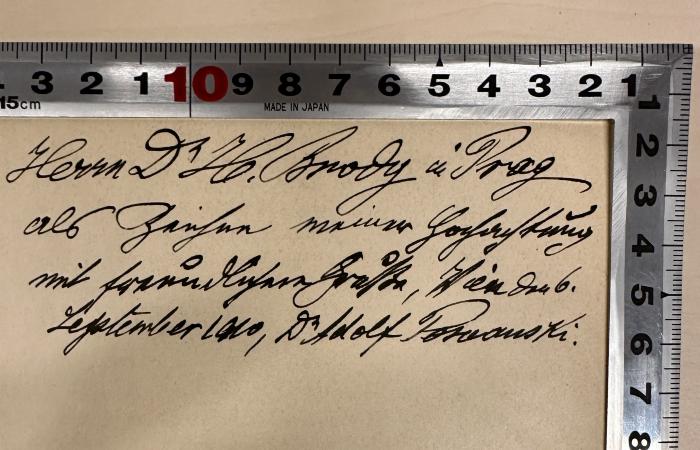 3 2 1 10 9 8 7 6 5 4 3 2 1
15cm MADE IN JAPAN
Herrn Dr H. Brody in Prag
als Zeichen meiner Hochachtung
mit freundlichem Gruße, Wien den 6.
September 1910, Dr Adolf Posnanski.
1
2
3
4
5
6
7
8